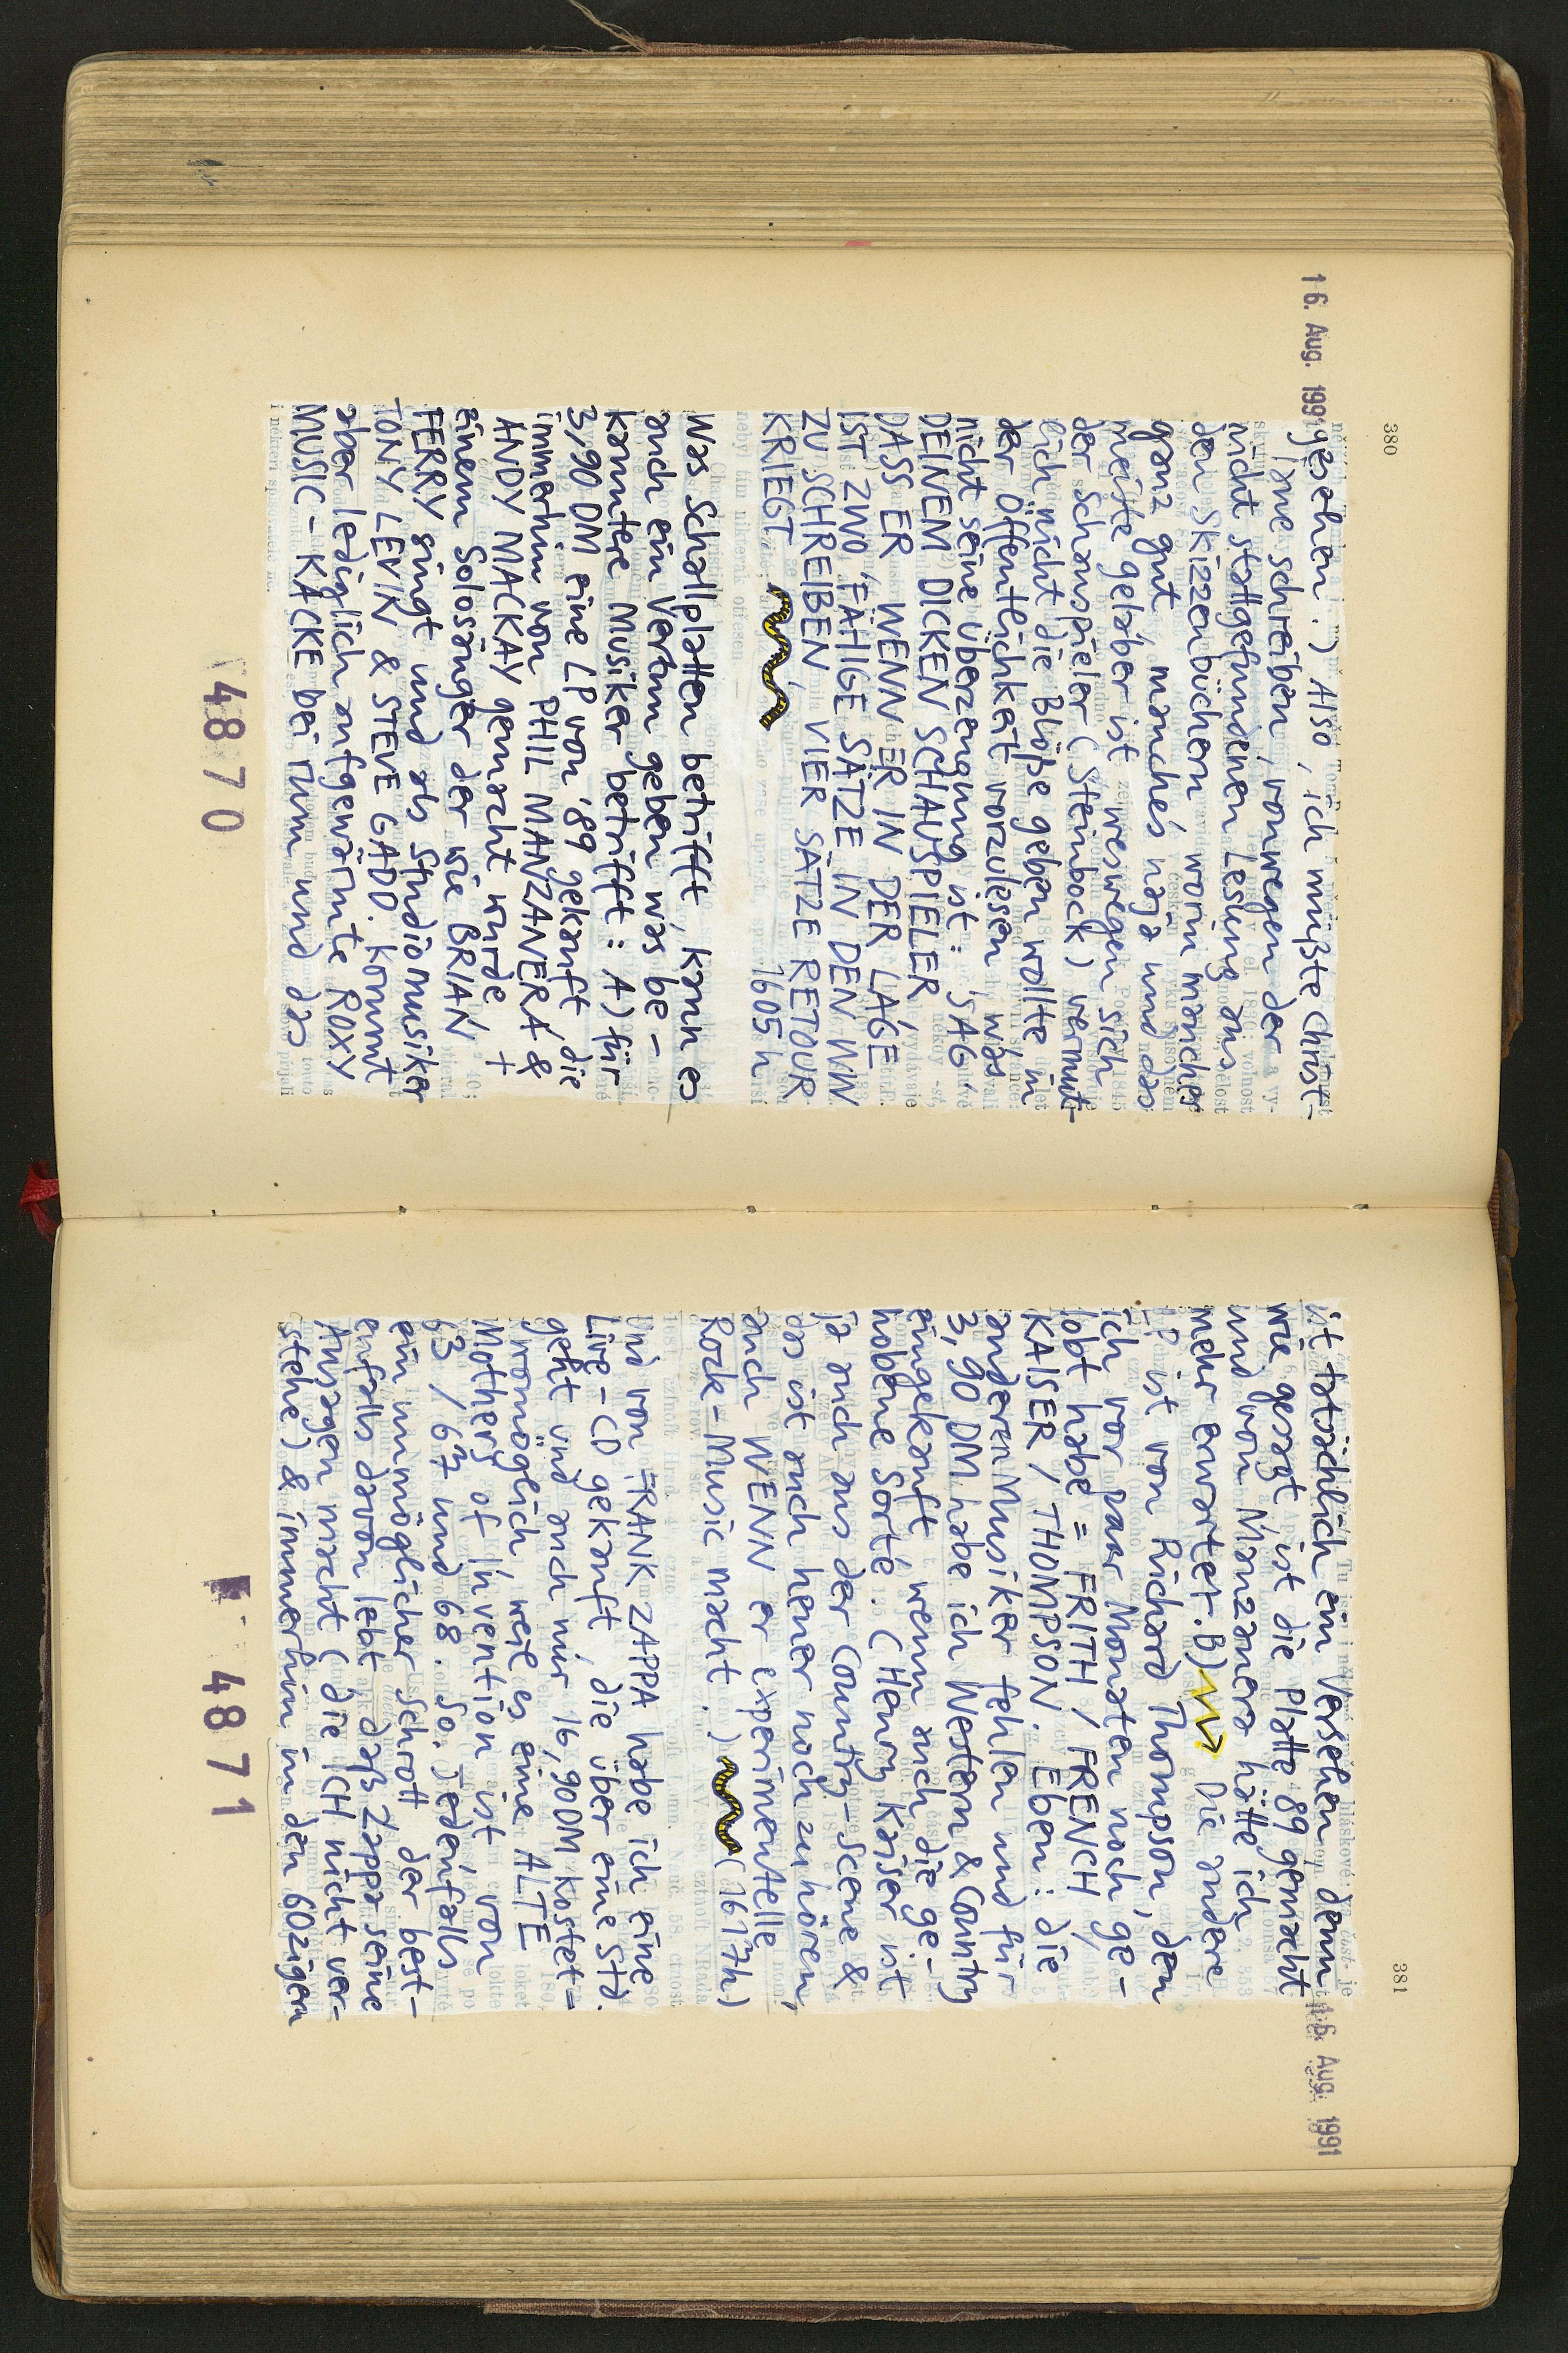 380
16. Aug. 1991
gesehen.) Also, ich müßte Christ-
iane schreiben, vonwegen der
nicht stattgefundenen Lesung aus
den Skizzenbüchern worin manches
ganz gut, manches naja und das
meiste gelaber ist weswegen sich
der Schauspieler (Steinbock) vermut-
lich nicht die Blöße geben wollte in
der Öffentlichkeit vorzulesen was
nicht seine Überzeugung ist: SAG
DEINEM DICKEN SCHAUSPIELER
DASS ER WENN ER IN DER LAGE
IST ZWO FÄHIGE SÄTZE IN DEN WIN
ZU SCHREIBEN, VIER SÄTZE RETOUR
KRIEGT 1605 h
Was Schallplatten betrifft, kann es
auch ein Vertun geben was be-
kanntere Musiker betrifft: A) für
3,90 DM eine LP von '89 gekauft die
immerhin von PHIL MANZANERA &
ANDY MACKAY gemacht wurde +
einem Solosänger der wie BRIAN
FERRY singt und als Studiomusiker
TONY LEVIN & STEVE GADD. Kommt
aber lediglich aufgewärmte ROXY
MUSIC-KACKE bei rum und das
4870
381
16. Aug. 1991
ist tatsächlich ein Versehen denn
wie gesagt ist die Platte 89 gemacht
und von Manzanera hätte ich
mehr erwartet. B) Die andere
LP ist von Richard Thompson, den
ich vor paar Monaten noch ge-
lobt habe = FRITH / FRENCH /
KAISER / THOMPSON. Eben: die
anderen Musiker fehlen und für
3,90 DM habe ich Western & Country
eingekauft wenn auch die ge-
hobene Sorte. (Henry Kaiser ist
ja auch aus der Country-Scene &
das ist auch heuer noch zu hören,
auch WENN er experimentelle
Rock-Music macht.) (1617h)
Und von FRANK ZAPPA habe ich eine
Live-CD gekauft, die über eine Std.
geht und auch nur 16,90DM kostet =
womöglich, weil es eine ALTE
Mothers of Invention ist, von
63 / 67 und 68. So. Jedenfalls
ein unmöglicher Schrott der best-
enfalls davon lebt daß Zappa seine
Ansagen macht (die ICH nicht ver-
stehe) & immerhin in den 60zigen
4871